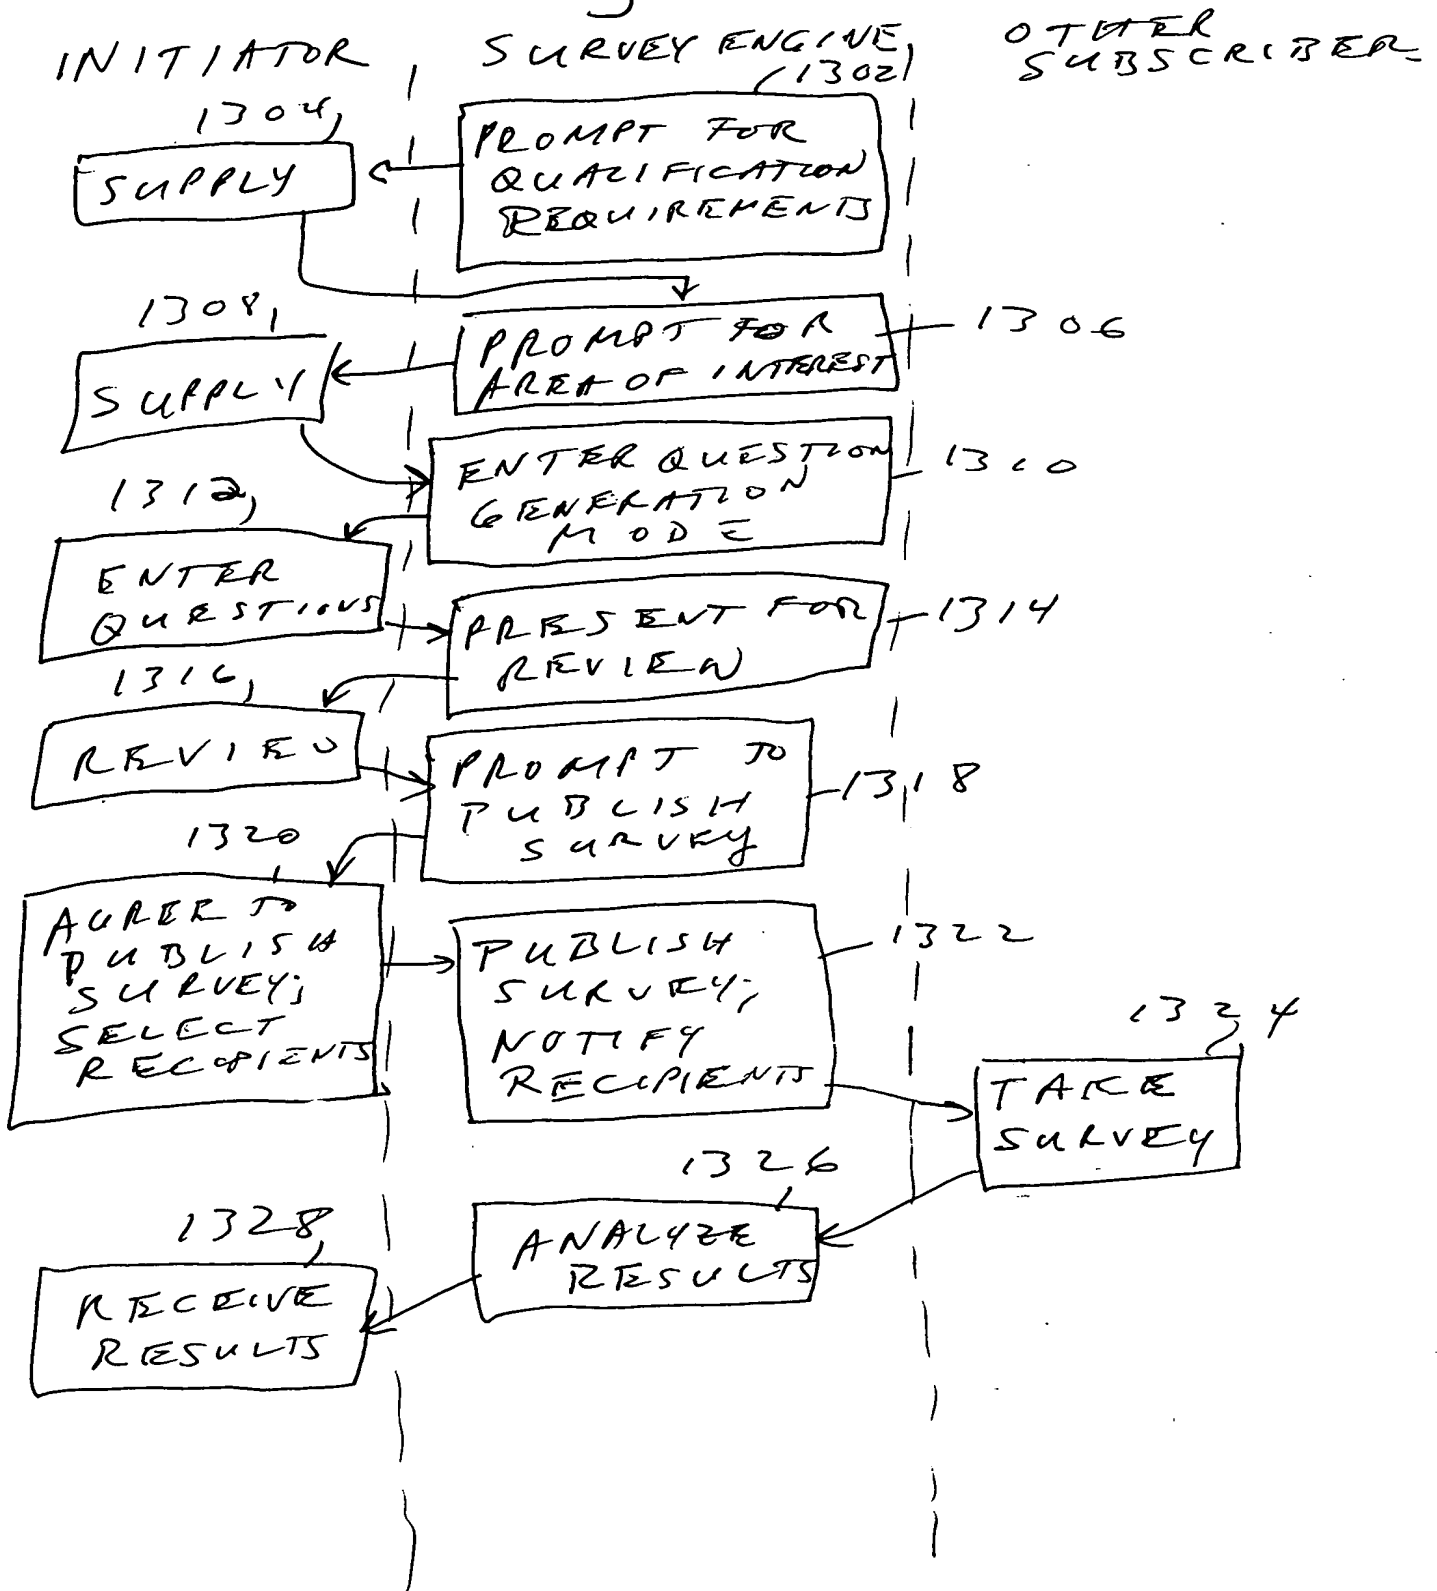 INITIATOR
SURVEY ENGINE
OTHER
SUBSCRIBER
1302
1304
PROMPT FOR
QUALIFICATION
REQUIREMENTS
SUPPLY
1308
PROMPT FOR
AREA OF INTEREST
1306
SUPPLY
ENTER QUESTION
GENERATION
MODE
1310
1312
ENTER
QUESTIONS
PRESENT FOR
REVIEW
1314
1316
REVIEW
PROMPT TO
PUBLISH
SURVEY
1318
1320
AGREE TO
PUBLISH
SURVEY;
SELECT
RECIPIENTS
PUBLISH
SURVEY;
NOTIFY
RECIPIENTS
1322
1324
TAKE
SURVEY
1326
ANALYZE
RESULTS
1328
RECEIVE
RESULTS